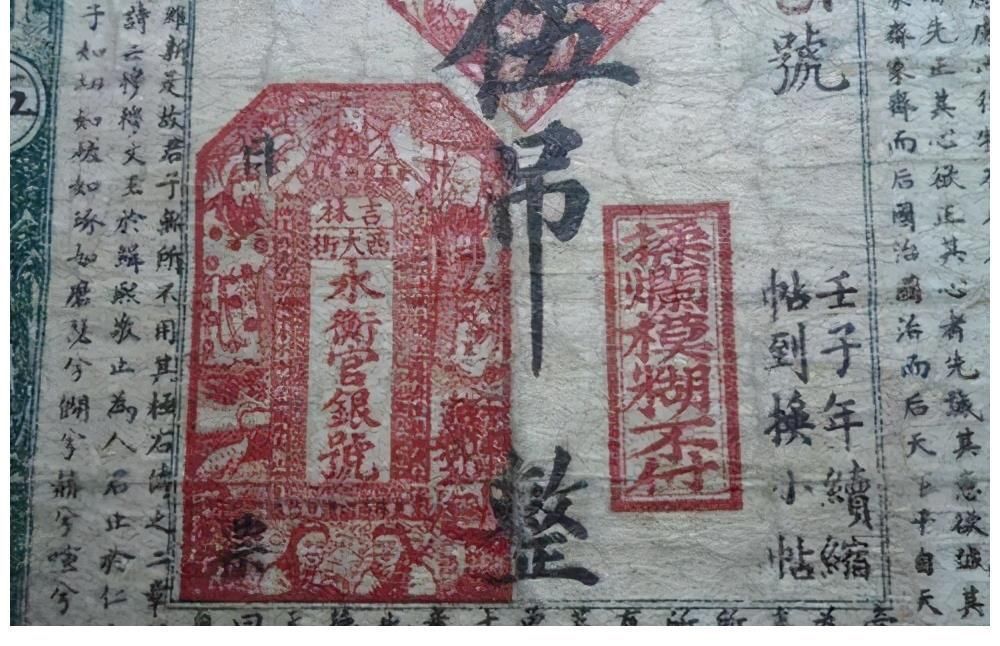 先正其心欲正其心者先誠其意欲誠其
家齊家齊而后國治國治而后天下平自天
號
壬子年續縮
帖到換小帖
揉爛模糊不付
伍吊整
吉林
西大街
永衡官銀號
票
維新是故君子無所不用其極右傳之二章
詩云穆穆文王於緝熙敬止為人君止於仁
子如切如磋如琢如磨瑟兮僩兮赫兮喧兮